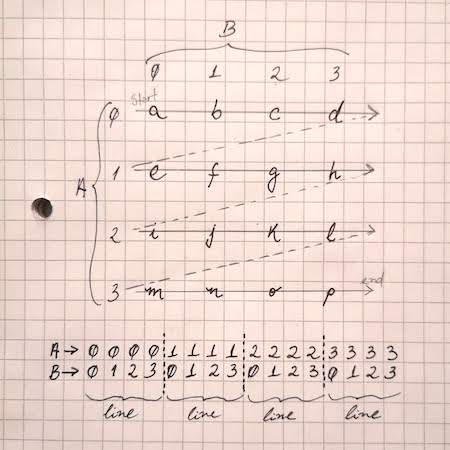 B
0 1 2 3
start
0 a b c d
A
1 e f g h
2 i j k l
end
3 m n o p
A→ 0 0 0 0 1 1 1 1 2 2 2 2 3 3 3 3
B→ 0 1 2 3 0 1 2 3 0 1 2 3 0 1 2 3
line line line line